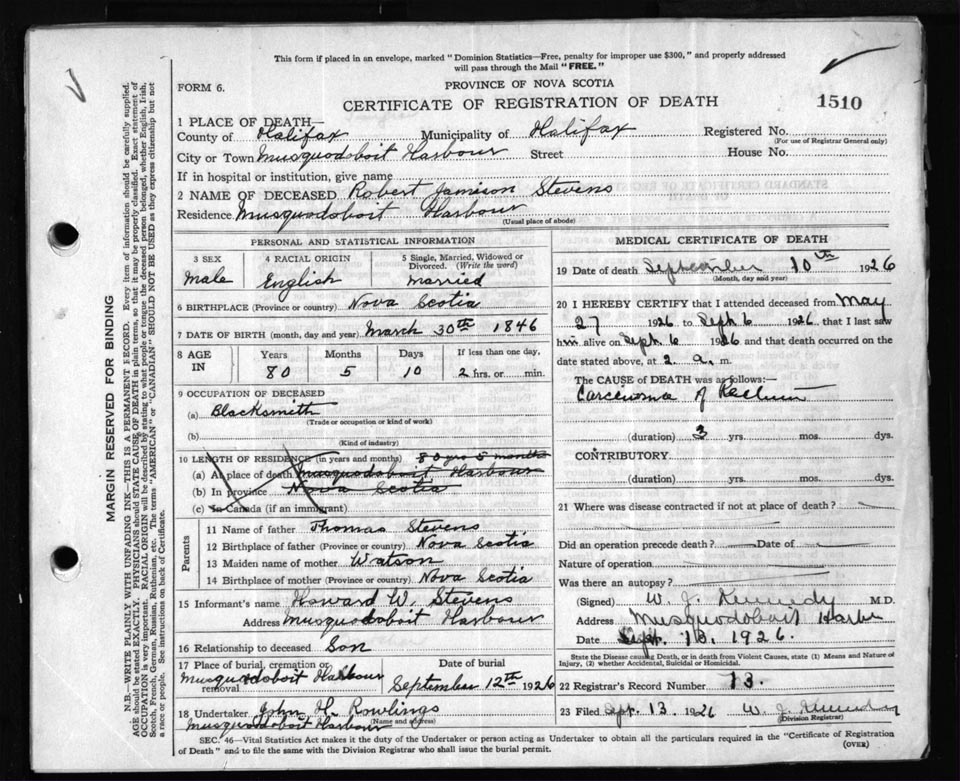 This form if placed in an envelope, marked "Dominion Statistics—Free, penalty for improper use $300," and properly addressed
will pass through the Mail "FREE."
FORM 6.
PROVINCE OF NOVA SCOTIA
CERTIFICATE OF REGISTRATION OF DEATH
1510
1 PLACE OF DEATH—
County of Halifax Municipality of Halifax Registered No.
(For use of Registrar General only)
City or Town Musquodoboit Harbour Street House No.
If in hospital or institution, give name
2 NAME OF DECEASED Robert Jamison Stevens
Residence Musquodoboit Harbour
(Usual place of abode)
PERSONAL AND STATISTICAL INFORMATION
3 SEX
Male
4 RACIAL ORIGIN
English
5 Single, Married, Widowed or
Divorced. (Write the word)
Married
6 BIRTHPLACE (Province or country) Nova Scotia
7 DATE OF BIRTH (month, day and year) March 30th 1846
8 AGE
IN
Years Months Days If less than one day,
80 5 10 2 hrs. or min.
9 OCCUPATION OF DECEASED
(a) Blacksmith
(Trade or occupation or kind of work)
(b)
(Kind of industry)
10 LENGTH OF RESIDENCE (in years and months) 80 yrs 5 months
(a) At place of death Musquodoboit Harbour
(b) In province Nova Scotia
(c) In Canada (if an immigrant)
Parents
11 Name of father Thomas Stevens
12 Birthplace of father (Province or country) Nova Scotia
13 Maiden name of mother Watson
14 Birthplace of mother (Province or country) Nova Scotia
15 Informant's name Howard W. Stevens
Address Musquodoboit Harbour
16 Relationship to deceased Son
17 Place of burial, cremation or
removal
Musquodoboit Harbour
Date of burial
September 12th 1926
18 Undertaker John H. Rowlings
(Name and address)
Musquodoboit Harbour
MEDICAL CERTIFICATE OF DEATH
19 Date of death September 10th 1926
(Month, day and year)
20 I HEREBY CERTIFY that I attended deceased from May
27 1926 to Sept 6 1926, that I last saw
him alive on Sept. 6 1926 and that death occurred on the
date stated above, at 2. a. m.
The CAUSE OF DEATH was as follows:—
Carcinoma of Rectum
(duration) 3 yrs. mos. dys.
CONTRIBUTORY
(duration) yrs. mos. dys.
21 Where was disease contracted if not at place of death?
Did an operation precede death? Date of
Nature of operation
Was there an autopsy?
(Signed) W. J. Kennedy M.D.
Address Musquodoboit Harbor
Date Sept. 13. 1926.
State the Disease causing Death, or in death from Violent Causes, state (1) Means and Nature of
Injury, (2) whether Accidental, Suicidal or Homicidal.
22 Registrar's Record Number 13.
23 Filed Sept. 13 1926 W. J. Kennedy
(Division Registrar)
SEC. 46—Vital Statistics Act makes it the duty of the Undertaker or person acting as Undertaker to obtain all the particulars required in the "Certificate of Registration
of Death" and to file the same with the Division Registrar who shall issue the burial permit.
(OVER)
MARGIN RESERVED FOR BINDING
N.B.—WRITE PLAINLY WITH UNFADING INK—THIS IS A PERMANENT RECORD. Every item of information should be carefully supplied.
AGE should be stated EXACTLY. PHYSICIANS should STATE CAUSE OF DEATH in plain terms, so that it may be properly classified. Exact statement of
OCCUPATION is very important. RACIAL ORIGIN will be described by stating to what people or tongue the deceased person belonged, whether English, Irish,
Scotch, French, German, Russian, Ruthenian, etc. The terms "AMERICAN" or "CANADIAN" SHOULD NOT BE USED as they express citizenship but not
a race or people. See instructions on back of Certificate.